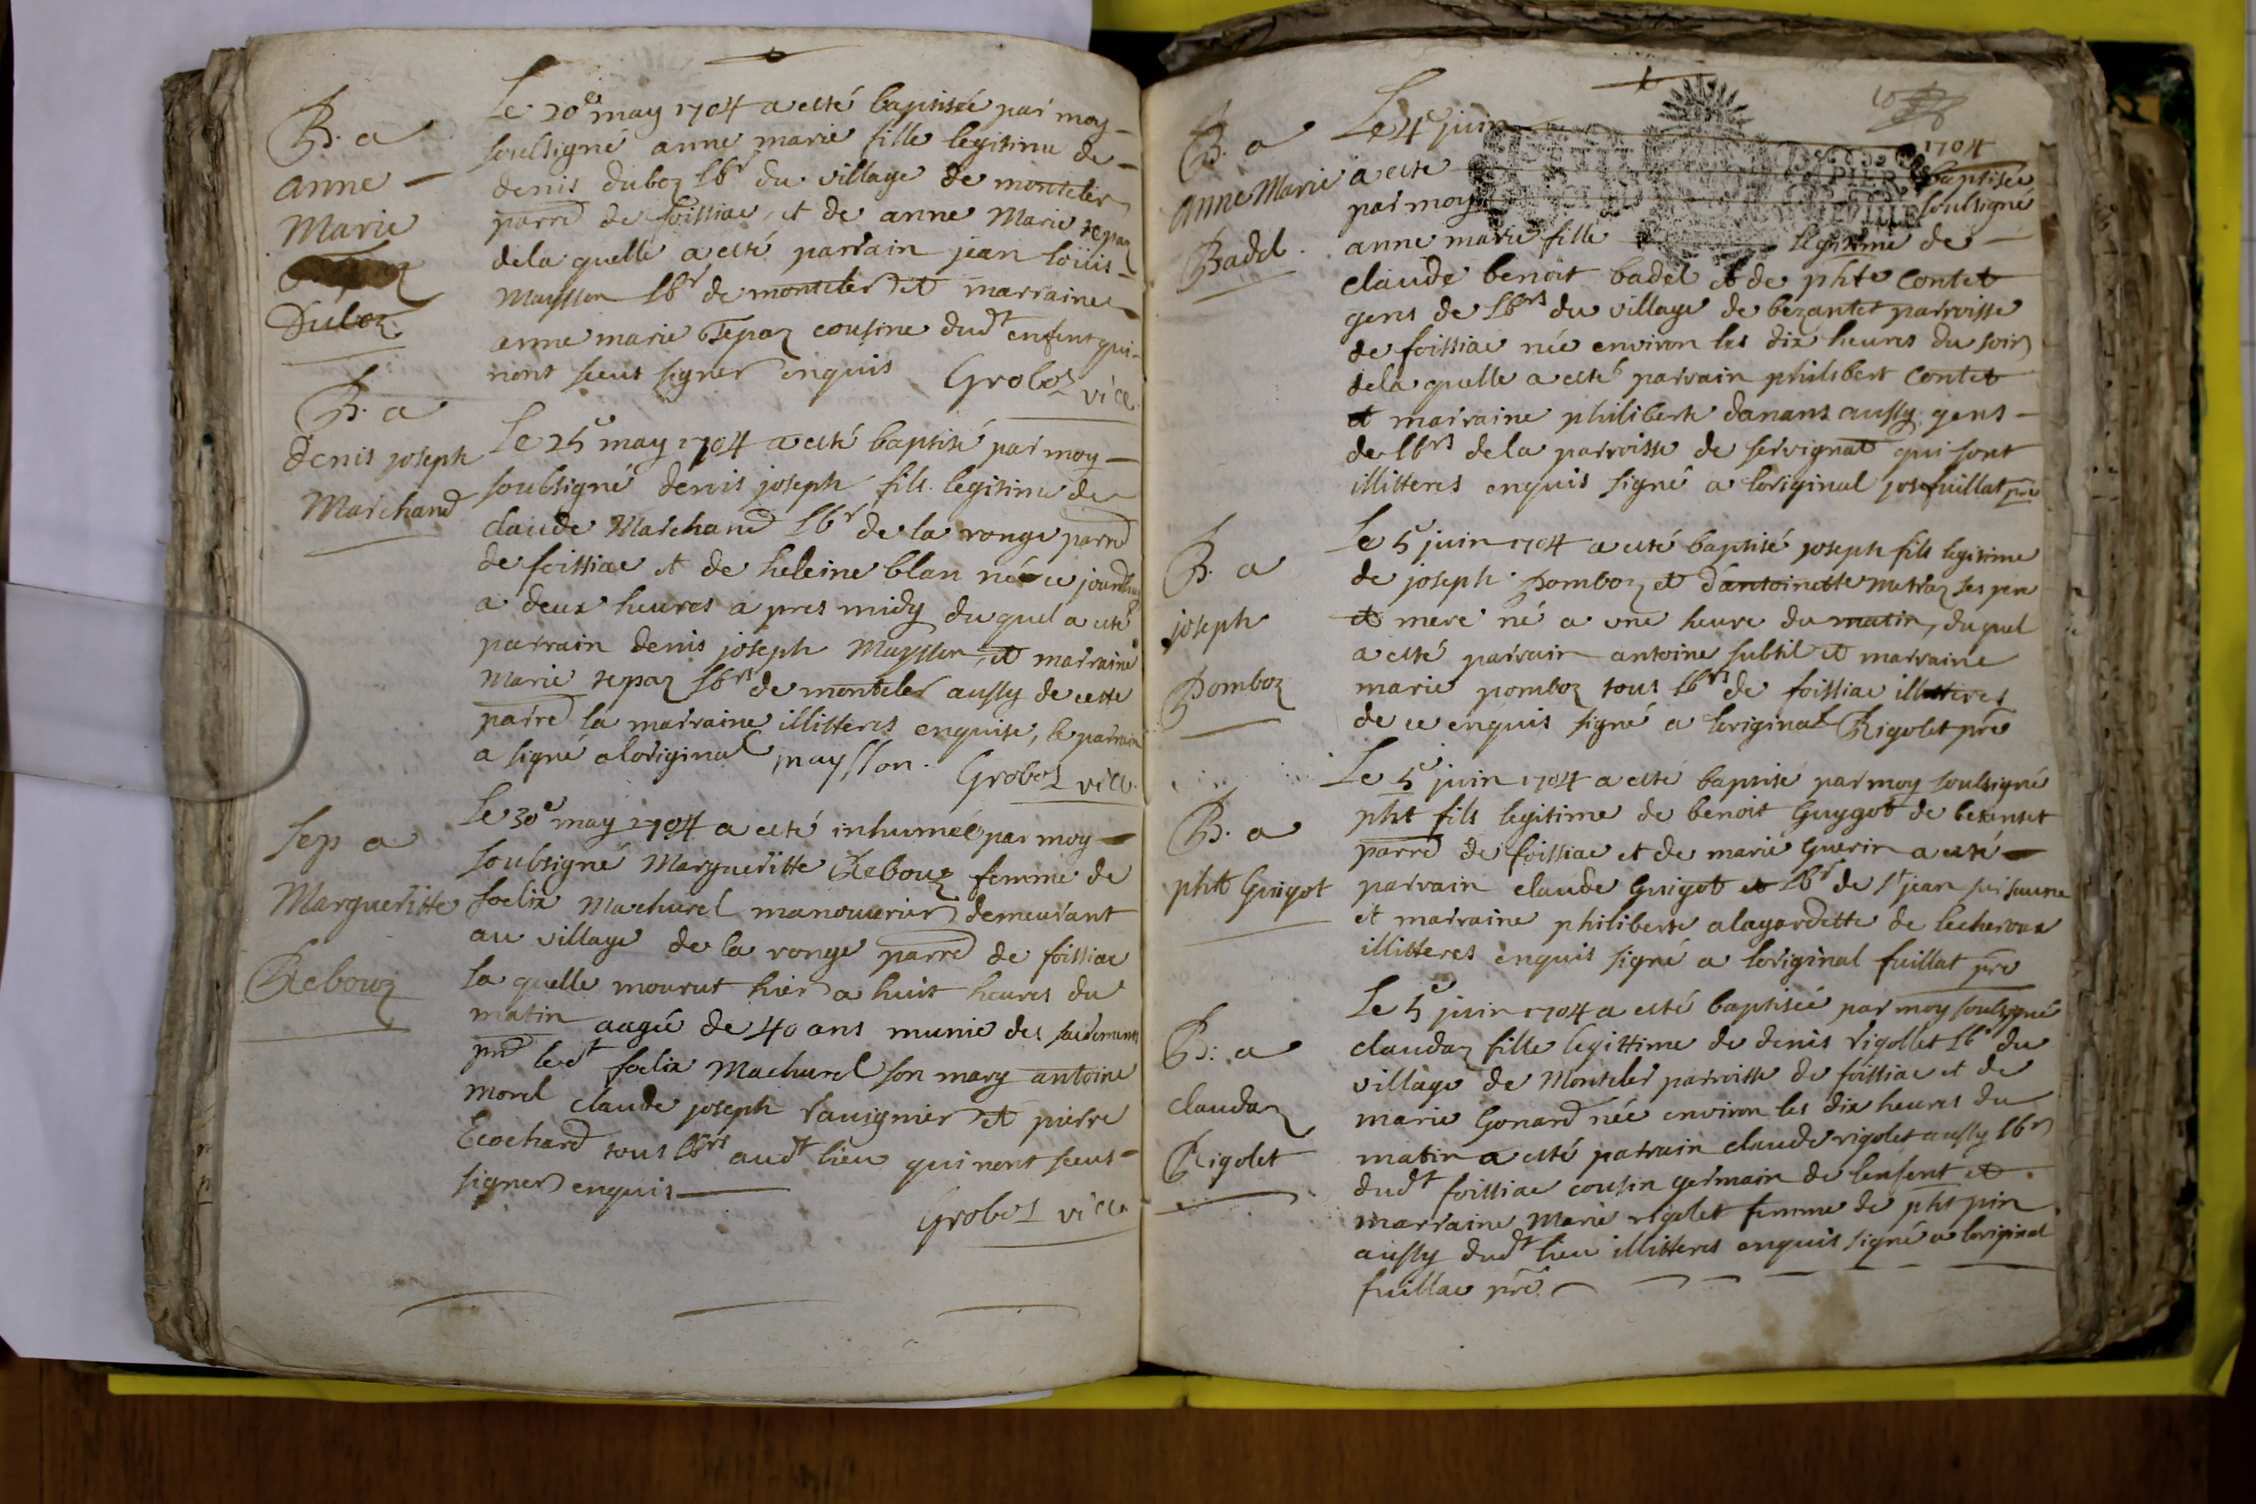 B. a
anne
Marie
Duboz
Le 20e may 1704 a esté baptisée par moy
soubsigné anne marie fille legitime de
denis duboz lbr du village de monteler
parre de foissiac, et de anne Marie tepaz
dela quelle a esté parrain jean loüis
Maysson lbr de monteler et marraine
anne marie Tepaz cousine dudt enfent qui
nont sceus signer enquis Groboz vice.
B. a
denis joseph
Marchand
Le 25e may 1704 a esté baptisé par moy
soubsigné denis joseph fils legitime de
claude Marchand lbr de la ronge parre
de foissiac et de heleine blan né ce jourdhuy
a deux heures apres midy duquel a esté
parrain denis joseph Maysson, et marraine
Marie tepaz lbrs de monteler aussy de cette
parre la marraine illitteres enquise, le parrain
a signé aloriginal maysson. Groboz vice.
Sep a
Margueritte
Rebouz
Le 30e may 1704 a esté inhumeé par moy
soubsigné Margueritte Rebouz femme de
foelix Machurel manouvrier demeurant
au village de la ronge parre de foissiac
la quelle mourut hier a huit heures du
matin aagée de 40 ans munie des sacrements
pnt ledt foelix Machurel son mary antoine
morel claude joseph ravignier et pierre
Ecochard tous lbrs audt lieu qui nont sceus
signer enquis
Groboz vice
1704
B. a
anne Marie
Badel.
Le 4e juin 1704
a esté baptisée
par moy soubsigné
anne marie fille legitime de
claude benoit badel et de phte contet
gens de lbrs du village de bezantet parroisse
de foissiac née environ les dix heures du soir
dela quelle a esté parrain philibert contet
et marraine philiberte danans aussy gens
de lbrs dela parroisse de servignat qui sont
illitteres enquis signé a loriginal fuillat pre
B. a
joseph
Pomboz
Le 5e juin 1704 a esté baptisé joseph fils legitime
de joseph Pomboz et dantoinette Metraz ses pere
et mere né a une heure du matin, duquel
a esté parrain antoine subtil et marraine
marie pomboz tous lbrs de foissiac illitteres
de ce enquis signé a loriginal Rigolet pre
B. a
phtt Guigot
Le 5e juin 1704 a esté baptisé par moy soubsigné
pht fils legitime de benoit Guygot de besantet
parre de foissiac et de marie Guerin a esté
parrain claude Guigot lbr de st jean
et marraine philiberte alagardette de lecheroux
illitteres enquis signé a loriginal fuillat pre
B: a
claudaz
Rigolet
Le 5e juin 1704 a esté baptisée par moy soubsigné
claudaz fille legittime de denis rigollet lbr du
village de Monteler parroisse de foissiac et de
marie Gonard née environ les dix heures du
matin a esté parrain claude rigolet aussy lbr
dudt foissiac cousin germain de lenfent et
marraine Marie rigolet femme de pht pin
aussy dudt lieu illitteres enquis signé a loriginal
fuillac pre